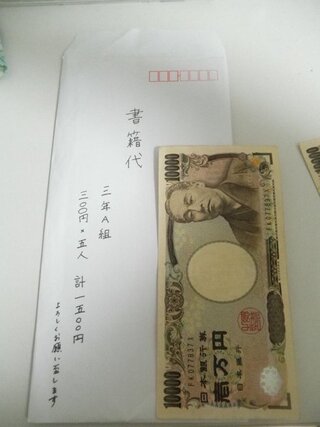 書籍代
三年A組
三〇〇円×五人 計 一五〇〇円
よろしくお願い致します
10000
FK077837X
日本銀行券
壱万円
日本銀行
10000